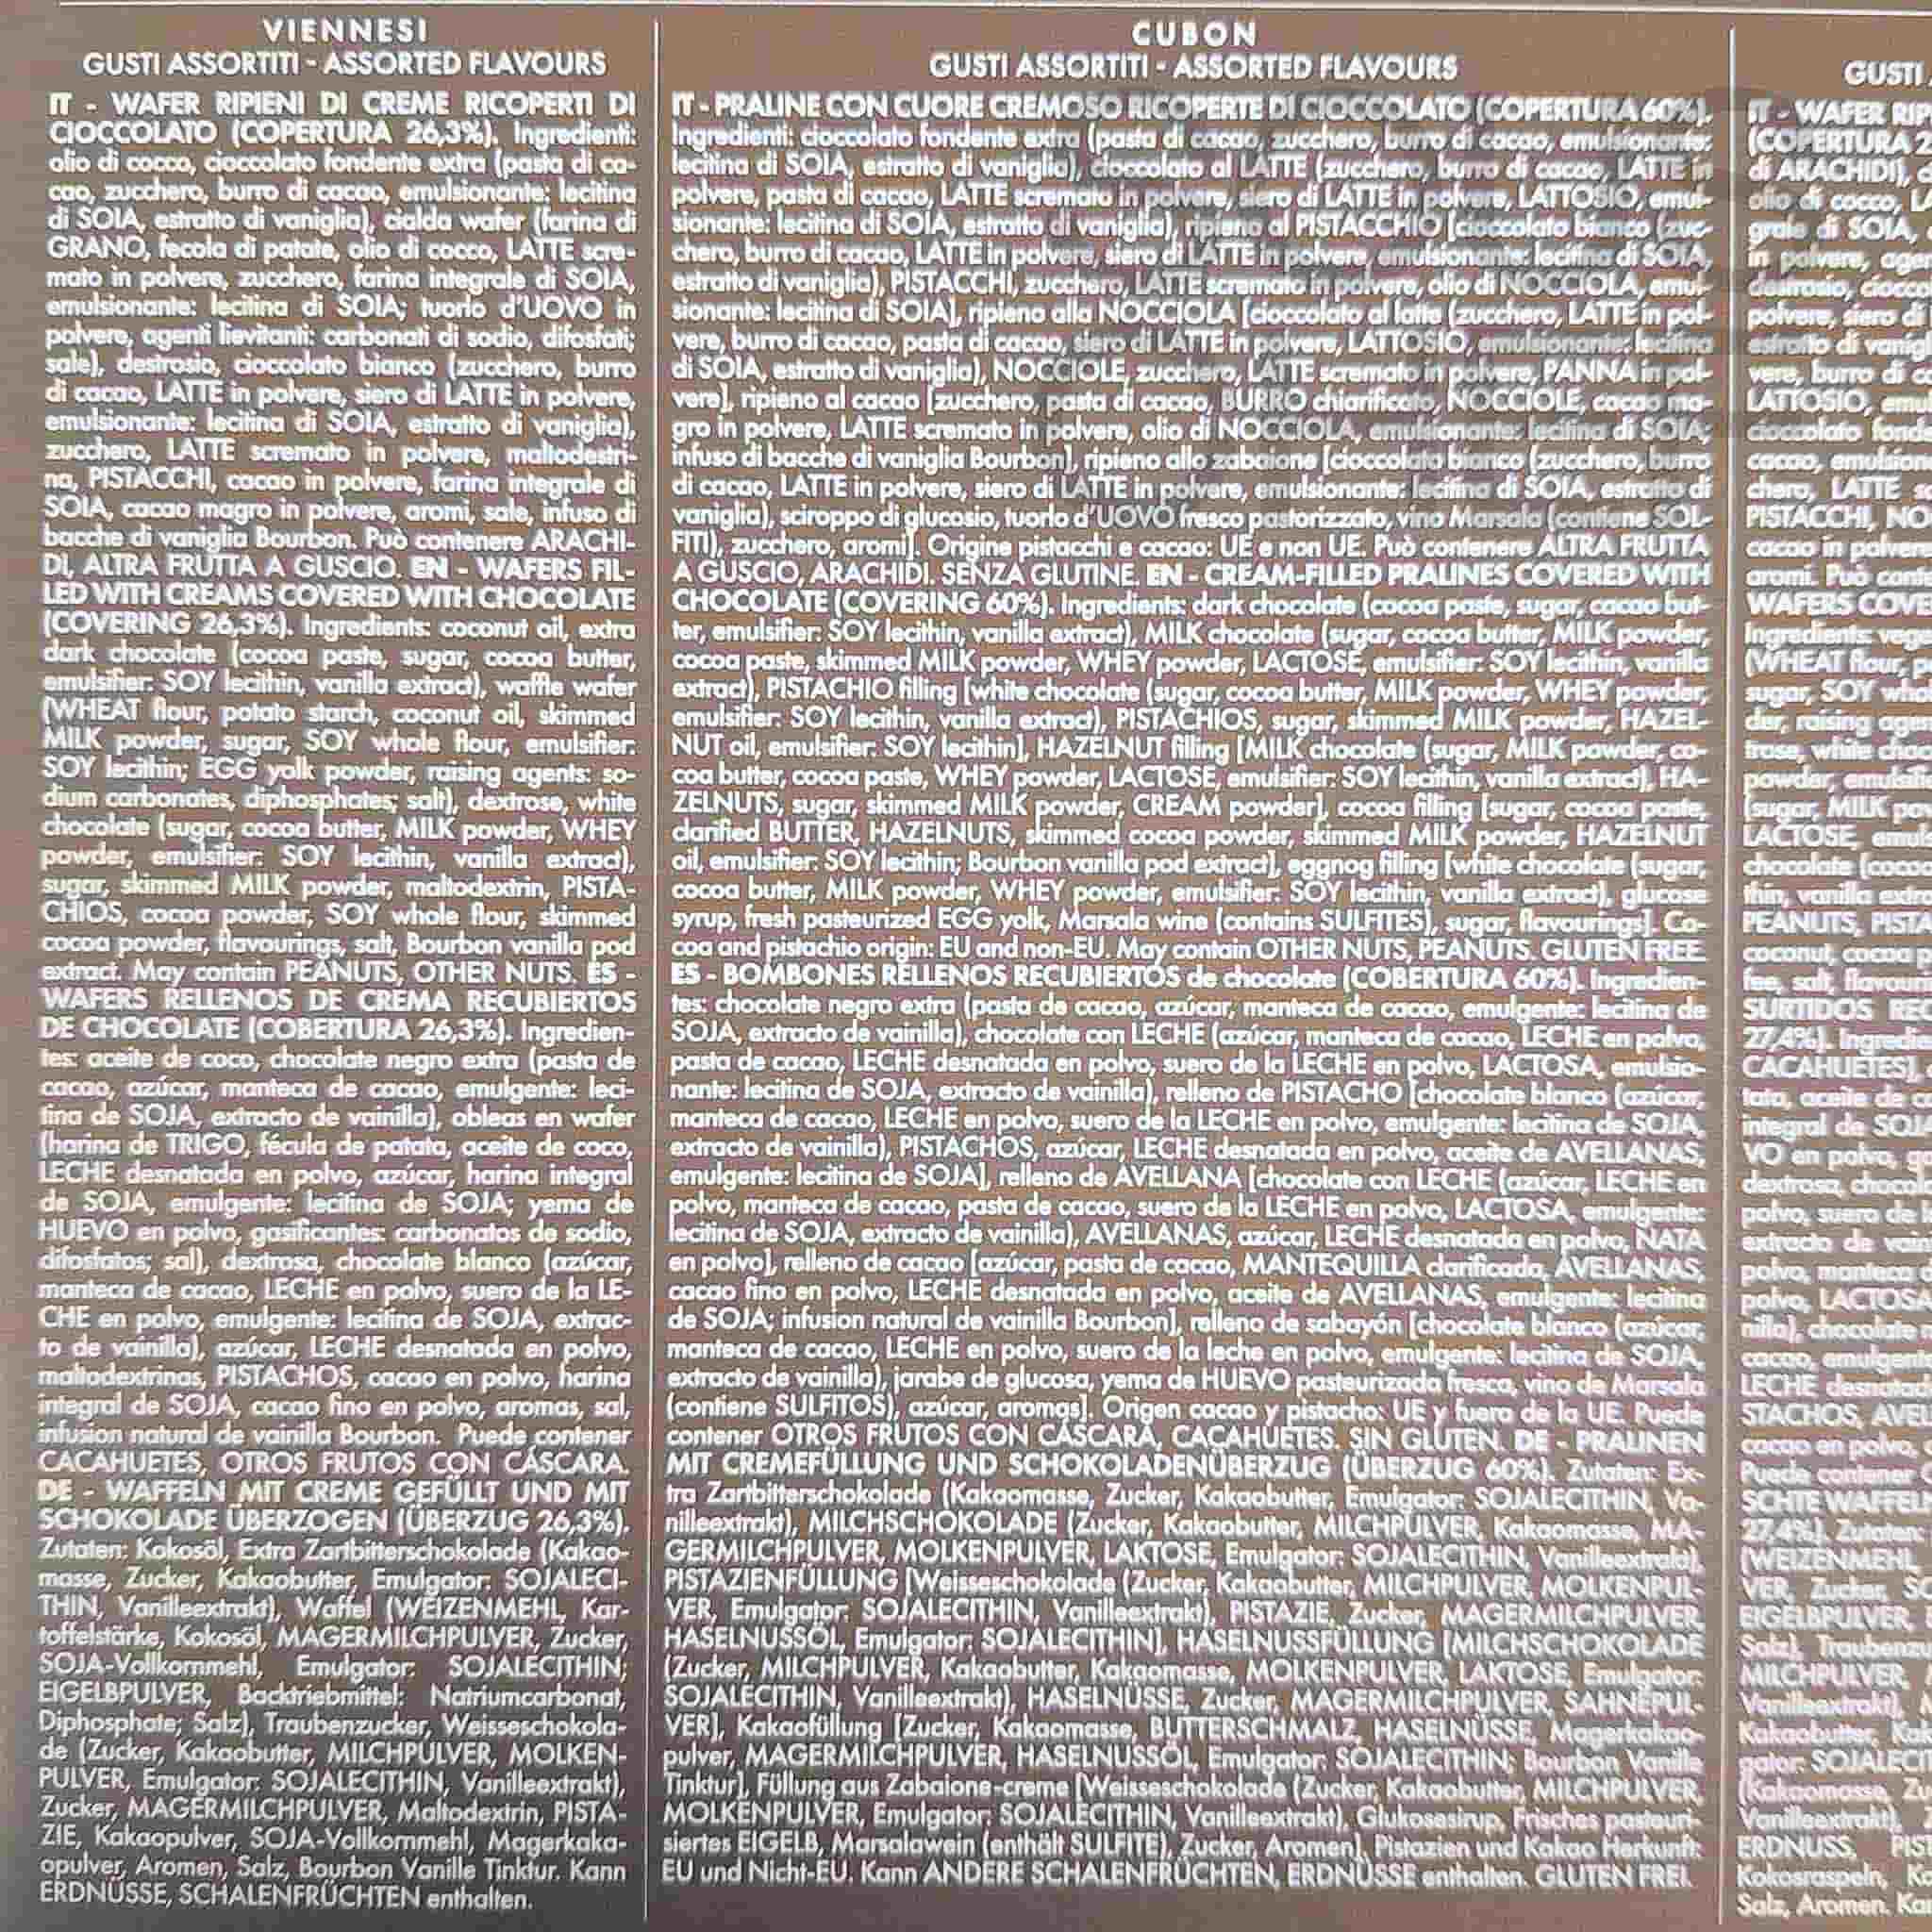 VIENNESI
GUSTI ASSORTITI - ASSORTED FLAVOURS
IT - WAFER RIPIENI DI CREME RICOPERTI DI
CIOCCOLATO (COPERTURA 26,3%). Ingredienti:
olio di cocco, cioccolato fondente extra (pasta di ca-
cao, zucchero, burro di cacao, emulsionante: lecitina
di SOIA, estratto di vaniglia), cialda wafer (farina di
GRANO, fecola di patate, olio di cocco, LATTE scre-
mato in polvere, zucchero, farina integrale di SOIA,
emulsionante: lecitina di SOIA; tuorlo d'UOVO in
polvere, agenti lievitanti: carbonati di sodio, difosfati;
sale), destrosio, cioccolato bianco (zucchero, burro
di cacao, LATTE in polvere, siero di LATTE in polvere,
emulsionante: lecitina di SOIA, estratto di vaniglia),
zucchero, LATTE scremato in polvere, maltodestri-
na, PISTACCHI, cacao in polvere, farina integrale di
SOIA, cacao magro in polvere, aromi, sale, infuso di
bacche di vaniglia Bourbon. Può contenere ARACHI-
DI, ALTRA FRUTTA A GUSCIO. EN - WAFERS FIL-
LED WITH CREAMS COVERED WITH CHOCOLATE
(COVERING 26,3%). Ingredients: coconut oil, extra
dark chocolate (cocoa paste, sugar, cocoa butter,
emulsifier: SOY lecithin, vanilla extract), waffle wafer
(WHEAT flour, potato starch, coconut oil, skimmed
MILK powder, sugar, SOY whole flour, emulsifier:
SOY lecithin; EGG yolk powder, raising agents: so-
dium carbonates, diphosphates; salt), dextrose, white
chocolate (sugar, cocoa butter, MILK powder, WHEY
powder, emulsifier: SOY lecithin, vanilla extract),
sugar, skimmed MILK powder, maltodextrin, PISTA-
CHIOS, cocoa powder, SOY whole flour, skimmed
cocoa powder, flavourings, salt, Bourbon vanilla pod
extract. May contain PEANUTS, OTHER NUTS. ES -
WAFERS RELLENOS DE CREMA RECUBIERTOS
DE CHOCOLATE (COBERTURA 26,3%). Ingredien-
tes: aceite de coco, chocolate negro extra (pasta de
cacao, azúcar, manteca de cacao, emulgente: leci-
tina de SOJA, extracto de vainilla), obleas en wafer
(harina de TRIGO, fécula de patata, aceite de coco,
LECHE desnatada en polvo, azúcar, harina integral
de SOJA, emulgente: lecitina de SOJA; yema de
HUEVO en polvo, gasificantes: carbonatos de sodio,
difosfatos; sal), dextrosa, chocolate blanco (azúcar,
manteca de cacao, LECHE en polvo, suero de la LE-
CHE en polvo, emulgente: lecitina de SOJA, extrac-
to de vainilla), azúcar, LECHE desnatada en polvo,
maltodextrinas, PISTACHOS, cacao en polvo, harina
integral de SOJA, cacao fino en polvo, aromas, sal,
infusion natural de vainilla Bourbon. Puede contener
CACAHUETES, OTROS FRUTOS CON CÁSCARA.
DE - WAFFELN MIT CREME GEFÜLLT UND MIT
SCHOKOLADE ÜBERZOGEN (ÜBERZUG 26,3%).
Zutaten: Kokosöl, Extra Zartbitterschokolade (Kakao-
masse, Zucker, Kakaobutter, Emulgator: SOJALECI-
THIN, Vanilleextrakt), Waffel (WEIZENMEHL, Kar-
toffelstärke, Kokosöl, MAGERMILCHPULVER, Zucker,
SOJA-Vollkornmehl, Emulgator: SOJALECITHIN;
EIGELBPULVER, Backtriebmittel: Natriumcarbonat,
Diphosphate; Salz), Traubenzucker, Weisseschokola-
de (Zucker, Kakaobutter, MILCHPULVER, MOLKEN-
PULVER, Emulgator: SOJALECITHIN, Vanilleextrakt),
Zucker, MAGERMILCHPULVER, Maltodextrin, PISTA-
ZIE, Kakaopulver, SOJA-Vollkornmehl, Magerkaka-
opulver, Aromen, Salz, Bourbon Vanille Tinktur. Kann
ERDNÜSSE, SCHALENFRÜCHTEN enthalten.
CUBON
GUSTI ASSORTITI - ASSORTED FLAVOURS
IT - PRALINE CON CUORE CREMOSO RICOPERTE DI CIOCCOLATO (COPERTURA 60%).
Ingredienti: cioccolato fondente extra (pasta di cacao, zucchero, burro di cacao, emulsionante:
lecitina di SOIA, estratto di vaniglia), cioccolato al LATTE (zucchero, burro di cacao, LATTE in
polvere, pasta di cacao, LATTE scremato in polvere, siero di LATTE in polvere, LATTOSIO, emul-
sionante: lecitina di SOIA, estratto di vaniglia), ripieno al PISTACCHIO [cioccolato bianco (zuc-
chero, burro di cacao, LATTE in polvere, siero di LATTE in polvere, emulsionante: lecitina di SOIA,
estratto di vaniglia), PISTACCHI, zucchero, LATTE scremato in polvere, olio di NOCCIOLA, emul-
sionante: lecitina di SOIA], ripieno alla NOCCIOLA [cioccolato al latte (zucchero, LATTE in pol-
vere, burro di cacao, pasta di cacao, siero di LATTE in polvere, LATTOSIO, emulsionante: lecitina
di SOIA, estratto di vaniglia), NOCCIOLE, zucchero, LATTE scremato in polvere, PANNA in pol-
vere], ripieno al cacao [zucchero, pasta di cacao, BURRO chiarificato, NOCCIOLE, cacao ma-
gro in polvere, LATTE scremato in polvere, olio di NOCCIOLA, emulsionante: lecitina di SOIA;
infuso di bacche di vaniglia Bourbon], ripieno allo zabaione [cioccolato bianco (zucchero, burro
di cacao, LATTE in polvere, siero di LATTE in polvere, emulsionante: lecitina di SOIA, estratto di
vaniglia), sciroppo di glucosio, tuorlo d'UOVO fresco pastorizzato, vino Marsala (contiene SOL-
FITI), zucchero, aromi]. Origine pistacchi e cacao: UE e non UE. Può contenere ALTRA FRUTTA
A GUSCIO, ARACHIDI. SENZA GLUTINE. EN - CREAM-FILLED PRALINES COVERED WITH
CHOCOLATE (COVERING 60%). Ingredients: dark chocolate (cocoa paste, sugar, cacao but-
ter, emulsifier: SOY lecithin, vanilla extract), MILK chocolate (sugar, cocoa butter, MILK powder,
cocoa paste, skimmed MILK powder, WHEY powder, LACTOSE, emulsifier: SOY lecithin, vanilla
extract), PISTACHIO filling [white chocolate (sugar, cocoa butter, MILK powder, WHEY powder,
emulsifier: SOY lecithin, vanilla extract), PISTACHIOS, sugar, skimmed MILK powder, HAZEL-
NUT oil, emulsifier: SOY lecithin], HAZELNUT filling [MILK chocolate (sugar, MILK powder, co-
coa butter, cocoa paste, WHEY powder, LACTOSE, emulsifier: SOY lecithin, vanilla extract), HA-
ZELNUTS, sugar, skimmed MILK powder, CREAM powder], cocoa filling [sugar, cocoa paste,
clarified BUTTER, HAZELNUTS, skimmed cocoa powder, skimmed MILK powder, HAZELNUT
oil, emulsifier: SOY lecithin; Bourbon vanilla pod extract], eggnog filling [white chocolate (sugar,
cocoa butter, MILK powder, WHEY powder, emulsifier: SOY lecithin, vanilla extract), glucose
syrup, fresh pasteurized EGG yolk, Marsala wine (contains SULFITES), sugar, flavourings]. Co-
coa and pistachio origin: EU and non-EU. May contain OTHER NUTS, PEANUTS. GLUTEN FREE.
ES - BOMBONES RELLENOS RECUBIERTOS de chocolate (COBERTURA 60%). Ingredien-
tes: chocolate negro extra (pasta de cacao, azúcar, manteca de cacao, emulgente: lecitina de
SOJA, extracto de vainilla), chocolate con LECHE (azúcar, manteca de cacao, LECHE en polvo,
pasta de cacao, LECHE desnatada en polvo, suero de la LECHE en polvo, LACTOSA, emulsio-
nante: lecitina de SOJA, extracto de vainilla), relleno de PISTACHO [chocolate blanco (azúcar,
manteca de cacao, LECHE en polvo, suero de la LECHE en polvo, emulgente: lecitina de SOJA,
extracto de vainilla), PISTACHOS, azúcar, LECHE desnatada en polvo, aceite de AVELLANAS,
emulgente: lecitina de SOJA], relleno de AVELLANA [chocolate con LECHE (azúcar, LECHE en
polvo, manteca de cacao, pasta de cacao, suero de la LECHE en polvo, LACTOSA, emulgente:
lecitina de SOJA, extracto de vainilla), AVELLANAS, azúcar, LECHE desnatada en polvo, NATA
en polvo], relleno de cacao [azúcar, pasta de cacao, MANTEQUILLA clarificada, AVELLANAS,
cacao fino en polvo, LECHE desnatada en polvo, aceite de AVELLANAS, emulgente: lecitina
de SOJA; infusion natural de vainilla Bourbon], relleno de sabayón [chocolate blanco (azúcar,
manteca de cacao, LECHE en polvo, suero de la leche en polvo, emulgente: lecitina de SOJA,
extracto de vainilla), jarabe de glucosa, yema de HUEVO pasteurizada fresca, vino de Marsala
(contiene SULFITOS), azúcar, aromas]. Origen cacao y pistacho: UE y fuera de la UE. Puede
contener OTROS FRUTOS CON CÁSCARA, CACAHUETES. SIN GLUTEN. DE - PRALINEN
MIT CREMEFÜLLUNG UND SCHOKOLADENÜBERZUG (ÜBERZUG 60%). Zutaten: Ex-
tra Zartbitterschokolade (Kakaomasse, Zucker, Kakaobutter, Emulgator: SOJALECITHIN, Va-
nilleextrakt), MILCHSCHOKOLADE (Zucker, Kakaobutter, MILCHPULVER, Kakaomasse, MA-
GERMILCHPULVER, MOLKENPULVER, LAKTOSE, Emulgator: SOJALECITHIN, Vanilleextrakt),
PISTAZIENFÜLLUNG [Weisseschokolade (Zucker, Kakaobutter, MILCHPULVER, MOLKENPUL-
VER, Emulgator: SOJALECITHIN, Vanilleextrakt), PISTAZIE, Zucker, MAGERMILCHPULVER,
HASELNUSSÖL, Emulgator: SOJALECITHIN], HASELNUSSFÜLLUNG [MILCHSCHOKOLADE
(Zucker, MILCHPULVER, Kakaobutter, Kakaomasse, MOLKENPULVER, LAKTOSE, Emulgator:
SOJALECITHIN, Vanilleextrakt), HASELNÜSSE, Zucker, MAGERMILCHPULVER, SAHNEPUL-
VER], Kakaofüllung [Zucker, Kakaomasse, BUTTERSCHMALZ, HASELNÜSSE, Magerkakao-
pulver, MAGERMILCHPULVER, HASELNUSSÖL, Emulgator: SOJALECITHIN; Bourbon Vanille
Tinktur], Füllung aus Zabaione-creme [Weisseschokolade (Zucker, Kakaobutter, MILCHPULVER,
MOLKENPULVER, Emulgator: SOJALECITHIN, Vanilleextrakt), Glukosesirup, Frisches pasteuri-
siertes EIGELB, Marsalawein (enthält SULFITE), Zucker, Aromen], Pistazien und Kakao Herkunft:
EU und Nicht-EU. Kann ANDERE SCHALENFRÜCHTEN, ERDNÜSSE enthalten. GLUTEN FREI.
GUSTI
IT - WAFER
(COPERTURA
di ARACHIDI),
olio di cocco,
grale di SOIA,
in polvere,
destrosio,
polvere, siero di
estratto di
vere, burro di
LATTOSIO,
cioccolato
cacao,
chero, LATTE
PISTACCHI,
cacao in
aromi. Può
WAFERS
Ingredients:
(WHEAT flour,
sugar, SOY
der, raising
trose, white
powder,
(sugar, MILK
LACTOSE,
chocolate
thin, vanilla
PEANUTS,
coconut, cocoa
fee, salt,
SURTIDOS
27,4%).
CACAHUETES),
tata, aceite de
integral de
VO en polvo,
dextrosa,
polvo, suero de
extracto de
polvo, manteca
polvo,
nilla), chocolate
cacao,
LECHE
STACHOS,
cacao en polvo,
Puede contener
SCHTE
27,4%). Zutaten:
(WEIZENMEHL,
VER, Zucker,
EIGELBPULVER,
Salz),
MILCHPULVER,
Vanilleextrakt),
Kakaobutter,
gator:
(Kakaomasse,
Vanilleextrakt),
ERDNUSS,
Kokosraspeln,
Salz, Aromen.